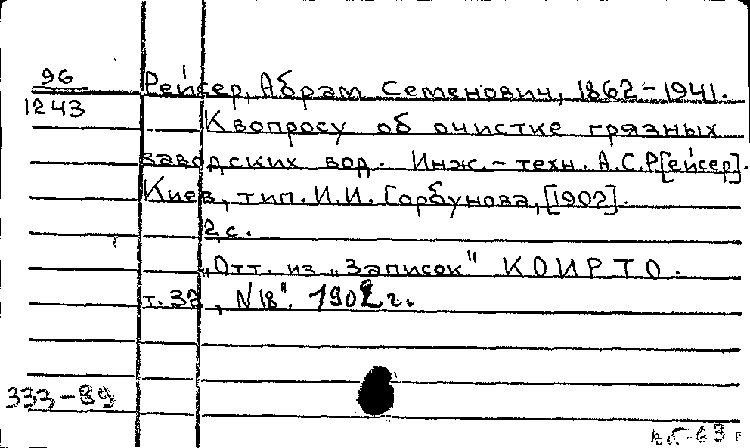 96
1243
Рейсер, Абрам Семенович, 1862-1941.
К вопросу об очистке грязных
заводских вод. Инж.-техн. А.С.Р[ейсер].
Киев, тип. И.И. Горбунова, [1902].
2 с.
„Отт. из „Записок" КОИРТО.
т. 32, N 18". 1902 г.
333-89